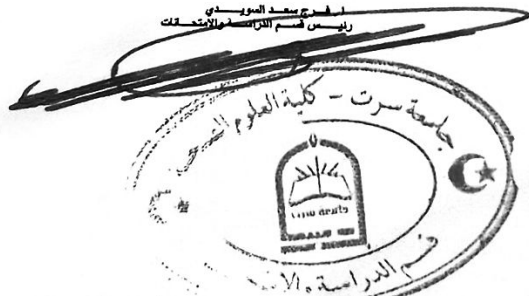 أ. فرج سعد السويدي
رئيس قسم الدراسة والامتحانات
جامعة سرت - كلية العلوم الصحية
جامعة سرت
قسم الدراسة والا